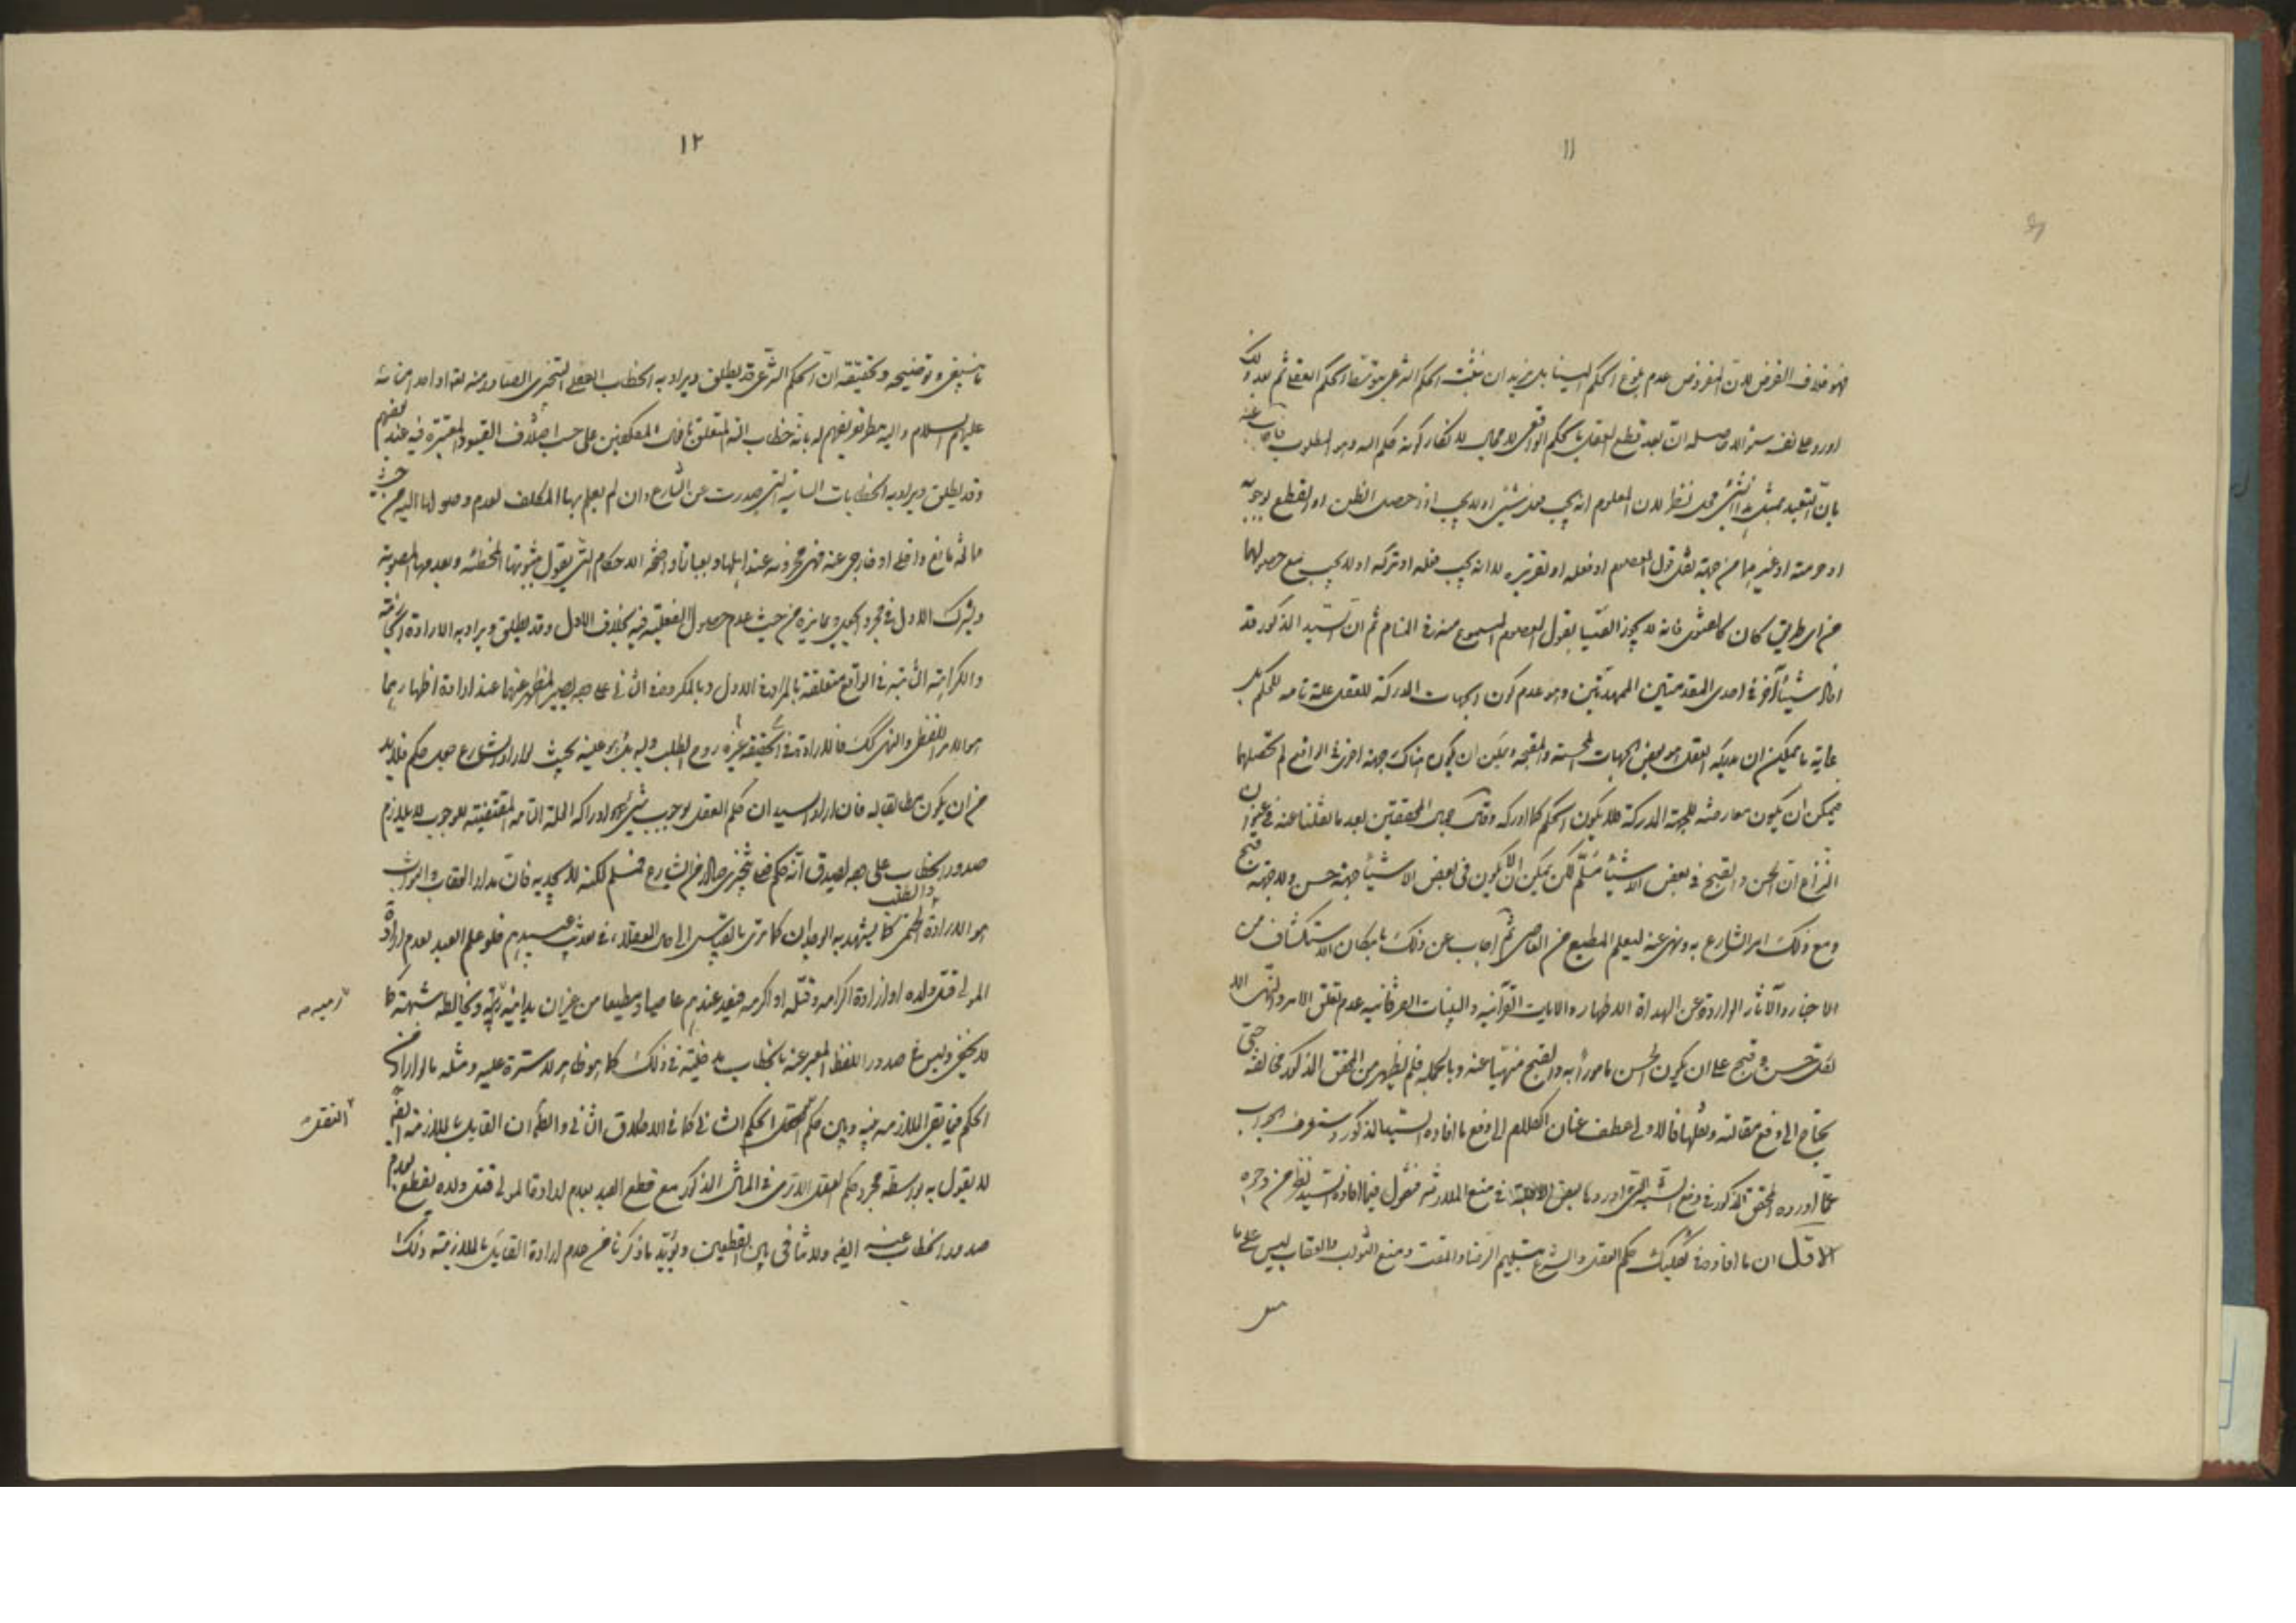 ١١
فهو خلاف الفرض لان المفروض عدم بلوغ الحكم الينا بل نريد ان نثبت الحكم الشرعي بتوسط الحكم العقلي ثم بعد ذلك
اورد على نفسه سؤالا حاصله ان بعد قطع العقل بالحكم الواقعي لا مجال لانكار كونه حكم الله وهو المطلوب فاجاب عنه
بان التعبد بمثل هذا الشيء محل نظر لان المعلوم انه يجب فعل شيء او لا يجب اذا حصل الظن او القطع بوجوبه
او حرمته او غيرهما من جهة نقل قول المعصوم او فعله او تقريره لا انه يجب فعله او تركه او لا يجب مع حصولهما
من اي طريق كان كما فانه لا يجوز العمل بقول المعصوم المسموع منه في المنام ثم ان السيد المذكور قد
افاد شيئا آخر في احدى المقدمتين الممهدتين وهو عدم كون الجهات المدركة للعقل علة تامة للحكم بل
غاية ما يمكن ان يدركه العقل هو بعض الجهات المحسنة والمقبحة ويمكن ان يكون هناك جهة اخرى في الواقع لم نحصلها
فيمكن ان يكون معارضة للجهة المدركة فلا يكون الحكم كما ادركه وقال جمال المحققين بعد ما نقلنا عنه في عنوان
النزاع ان الحسن والقبح في بعض الاشياء مسلم لكن يمكن ان لا يكون في بعض الاشياء جهة حسن ولا جهة قبح
ومع ذلك امر الشارع به ونهى عنه ليعلم المطيع من العاصي ثم اجاب عن ذلك بامكان الاستكشاف من
الاخبار والآثار الواردة عن الهداة الاطهار والآيات القرآنية والبينات الفرقانية عدم تعلق الامر والنهي الا
لعلة حسن وقبح على ان يكون الحسن مامورا به والقبيح منهيا عنه وبالجملة فلم يظهر من المحقق المذكور مخالفة حتى
يحتاج الى دفع مقالته ونقلها فالاولى عطف عنان الكلام الى دفع ما افاده السيد المذكور وستعرف الجواب
عما اورده المحقق المذكور في دفع الشبهة التي اوردها بعض الاجلة في منع الملازمة فنقول فيما افاده السيد نظر من وجوه
الاول ان ما افاده في تفكيك حكم العقل والشرع بتسليم الرضا والمقت ومنع الثواب والعقاب ليس على ما
١٢
ما ينبغي وتوضيحه وتحقيقه ان الحكم الشرعي قد يطلق ويراد به الخطاب الفعلي التنجزي الصادر منه تعالى او احد امنائه
عليهم السلام واليه ينظر تعريفهم له بانه خطاب الله المتعلق بافعال المكلفين على حسب اختلاف القيود المعتبرة فيه عند بعضهم
وقد يطلق ويراد به الخطابات الشانية التي صدرت عن الشارع وان لم يعلم بها المكلف لعدم وصولها اليه من حيث
مانع داخلي او خارجي عنه فهي مخزونة عند اهلها وبعبارة واضحة الاحكام التي يقول بثبوتها المخطئة وبعدمها المصوبة
ويشرك الاول في مجرد الجعل ويمايزه من حيث عدم حصول الفعلية فيه بخلاف الاول وقد يطلق ويراد به الارادة الحتمية
والكراهة الثابتة في الواقع متعلقة بالمراد في الاول وبالمكروه في الثاني على وجه يصير المظهر عنها عند ارادة اظهارهما
هو الامر اللفظي والنهي كذلك فالارادة في الحقيقة هي روح الطلب بحيث لو اراد الشارع جعل حكم فلا بد
من ان يكون مطابقا له فان اراد السيد ان حكم العقل بوجوب شيء وادراكه العلة التامة المقتضية للوجوب لا يلازم
صدور الخطاب على وجه يصدق انه حكم فعلي تنجزي صادر من الشارع فمسلم لكنه لا يجديه فان مدار العقاب والثواب
هو الارادة الحتمي والطلب كما يشهد به الوجدان كما ترى بالقياس الى حال العقلاء في معاتبة عبيدهم فلو علم العبد بعدم ارادة
المولى قتل ولده او ارادة اكرامه وقتله او اكرمه فيعد عندهم عاصيا ومطيعا من غير ان يدانيه ريبة ويخالطه شبهة كما
لا يخفى وليس في صدور اللفظ المعبر عنه بالخطاب مدخلية في ذلك كما هو ظاهر لا سترة عليه ومثله ما لو اراد من
الحكم في نفي الملازمة بينه وبين حكم العقل الحكم الشاني كما في الاطلاق الثاني والظاهر ان القائل بالملازمة ايضا
لا يقول به بواسطة مجرد حكم العقل الا ترى في المثال المذكور مع قطع العبد بعدم ارادة المولى قتل ولده يقطع بعدم
صدور الخطاب عنه ايضا ولا تنافي بين القطعين ويؤيد ما ذكرنا من عدم ارادة القائل بالملازمة ذلك